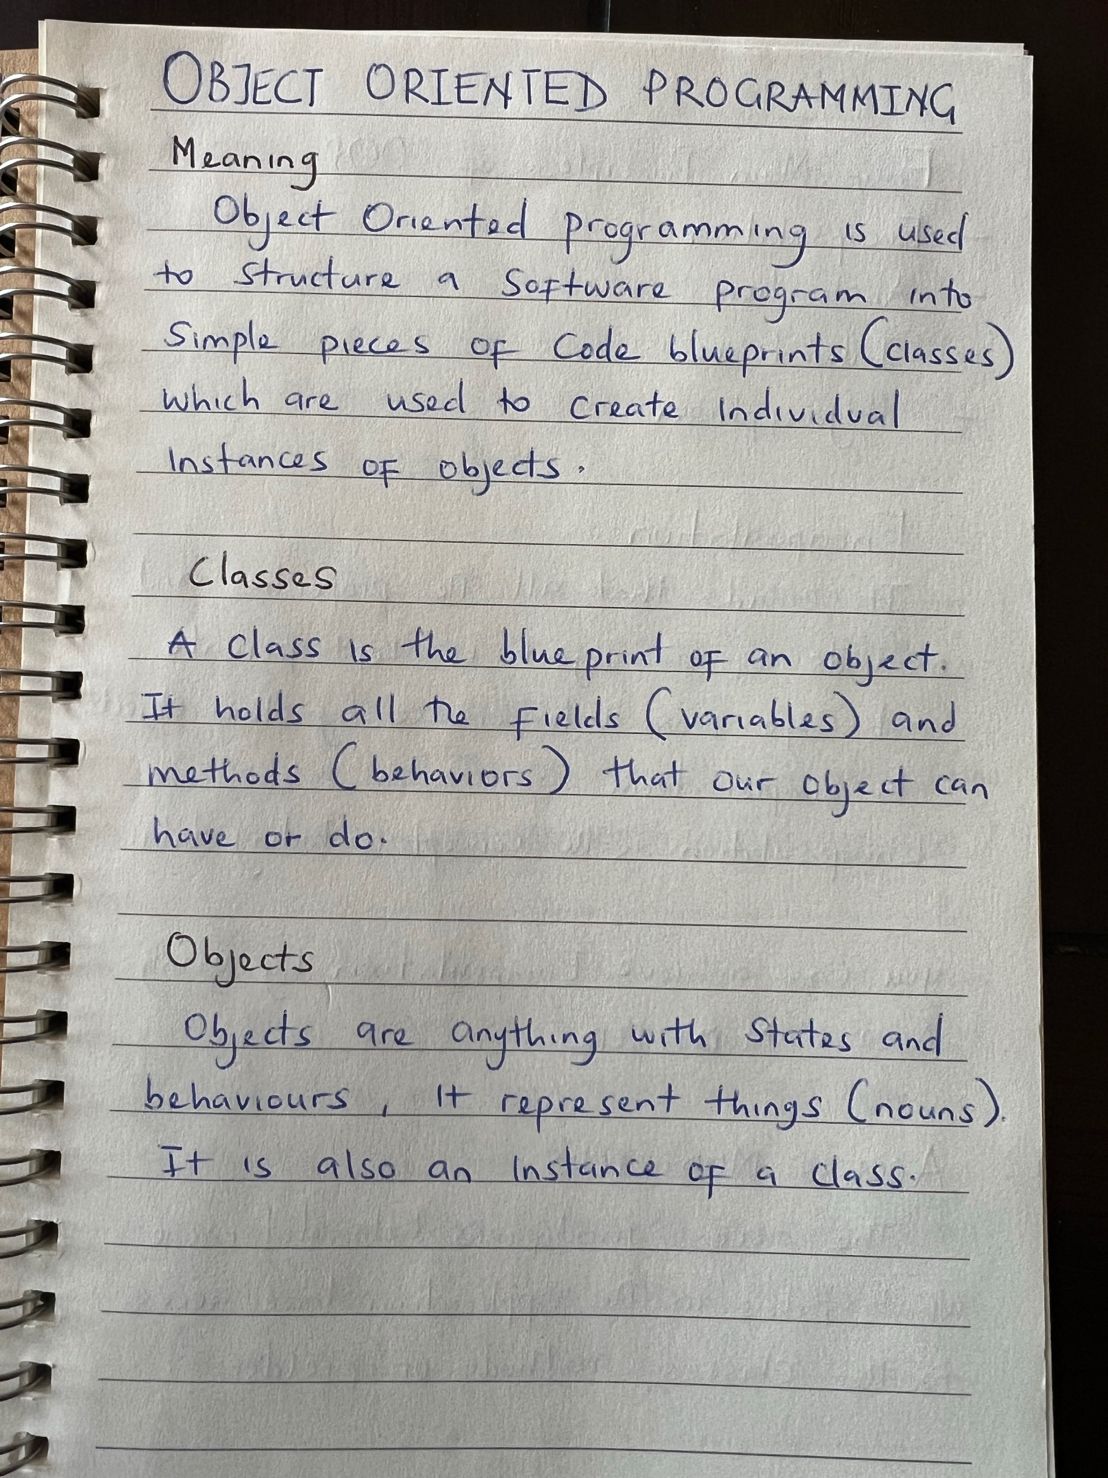 OBJECT ORIENTED PROGRAMMING
Meaning
Object Oriented programming is used
to structure a software program into
Simple pieces of Code blueprints (classes)
which are used to create individual
instances of objects.
Classes
A class is the blueprint of an object.
It holds all the fields (variables) and
methods (behaviors) that our object can
have or do.
Objects
Objects are anything with states and
behaviours, it represent things (nouns).
It is also an instance of a class.